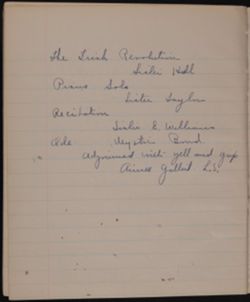 The Irish Revolution
Sister Hall
Piano Solo
Sister Taylor
Recitation
Sister E. Williams
Ode Mystic Band.
Adjourned with yell and grip
Aimee